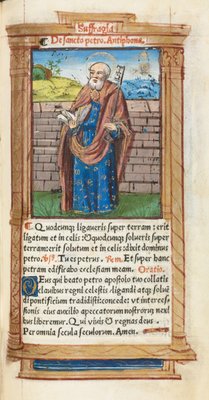 Suffragia
De sancto petro. Antiphona.
Quodcunq̃ ligaueris super terram: erit
ligatum et in celis & quodcunq̃ solueris super
terram: erit solutum et in celis dixit dominus
petro. Tu es petrus. Rem. Et super hanc
petram edificabo ecclesiam meam. Oratio.
Deus qui beato petro apostolo tuo collatis
clauibus regni celestis ligandi atq̃ soluẽ
di pontificium tradidisti: concede: vt interces
sionis eius auxilio a peccatorum nostrorum nexi
bus liberemur. Qui viuis & regnas deus
Per omnia secula seculorum. Amen.